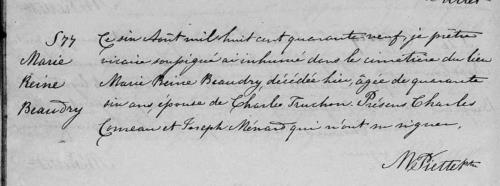 S77
Marie
Reine
Beaudry
Ce six Août mil huit cent quarante neuf, je prêtre
vicaire soussigné ai inhumé dans le cimetière du lieu
Marie Reine Beaudry, décédée hier, âgée de quarante
six ans, épouse de Charles Truchon. Présens Charles
Comeau et Joseph Ménard qui n'ont su signer.